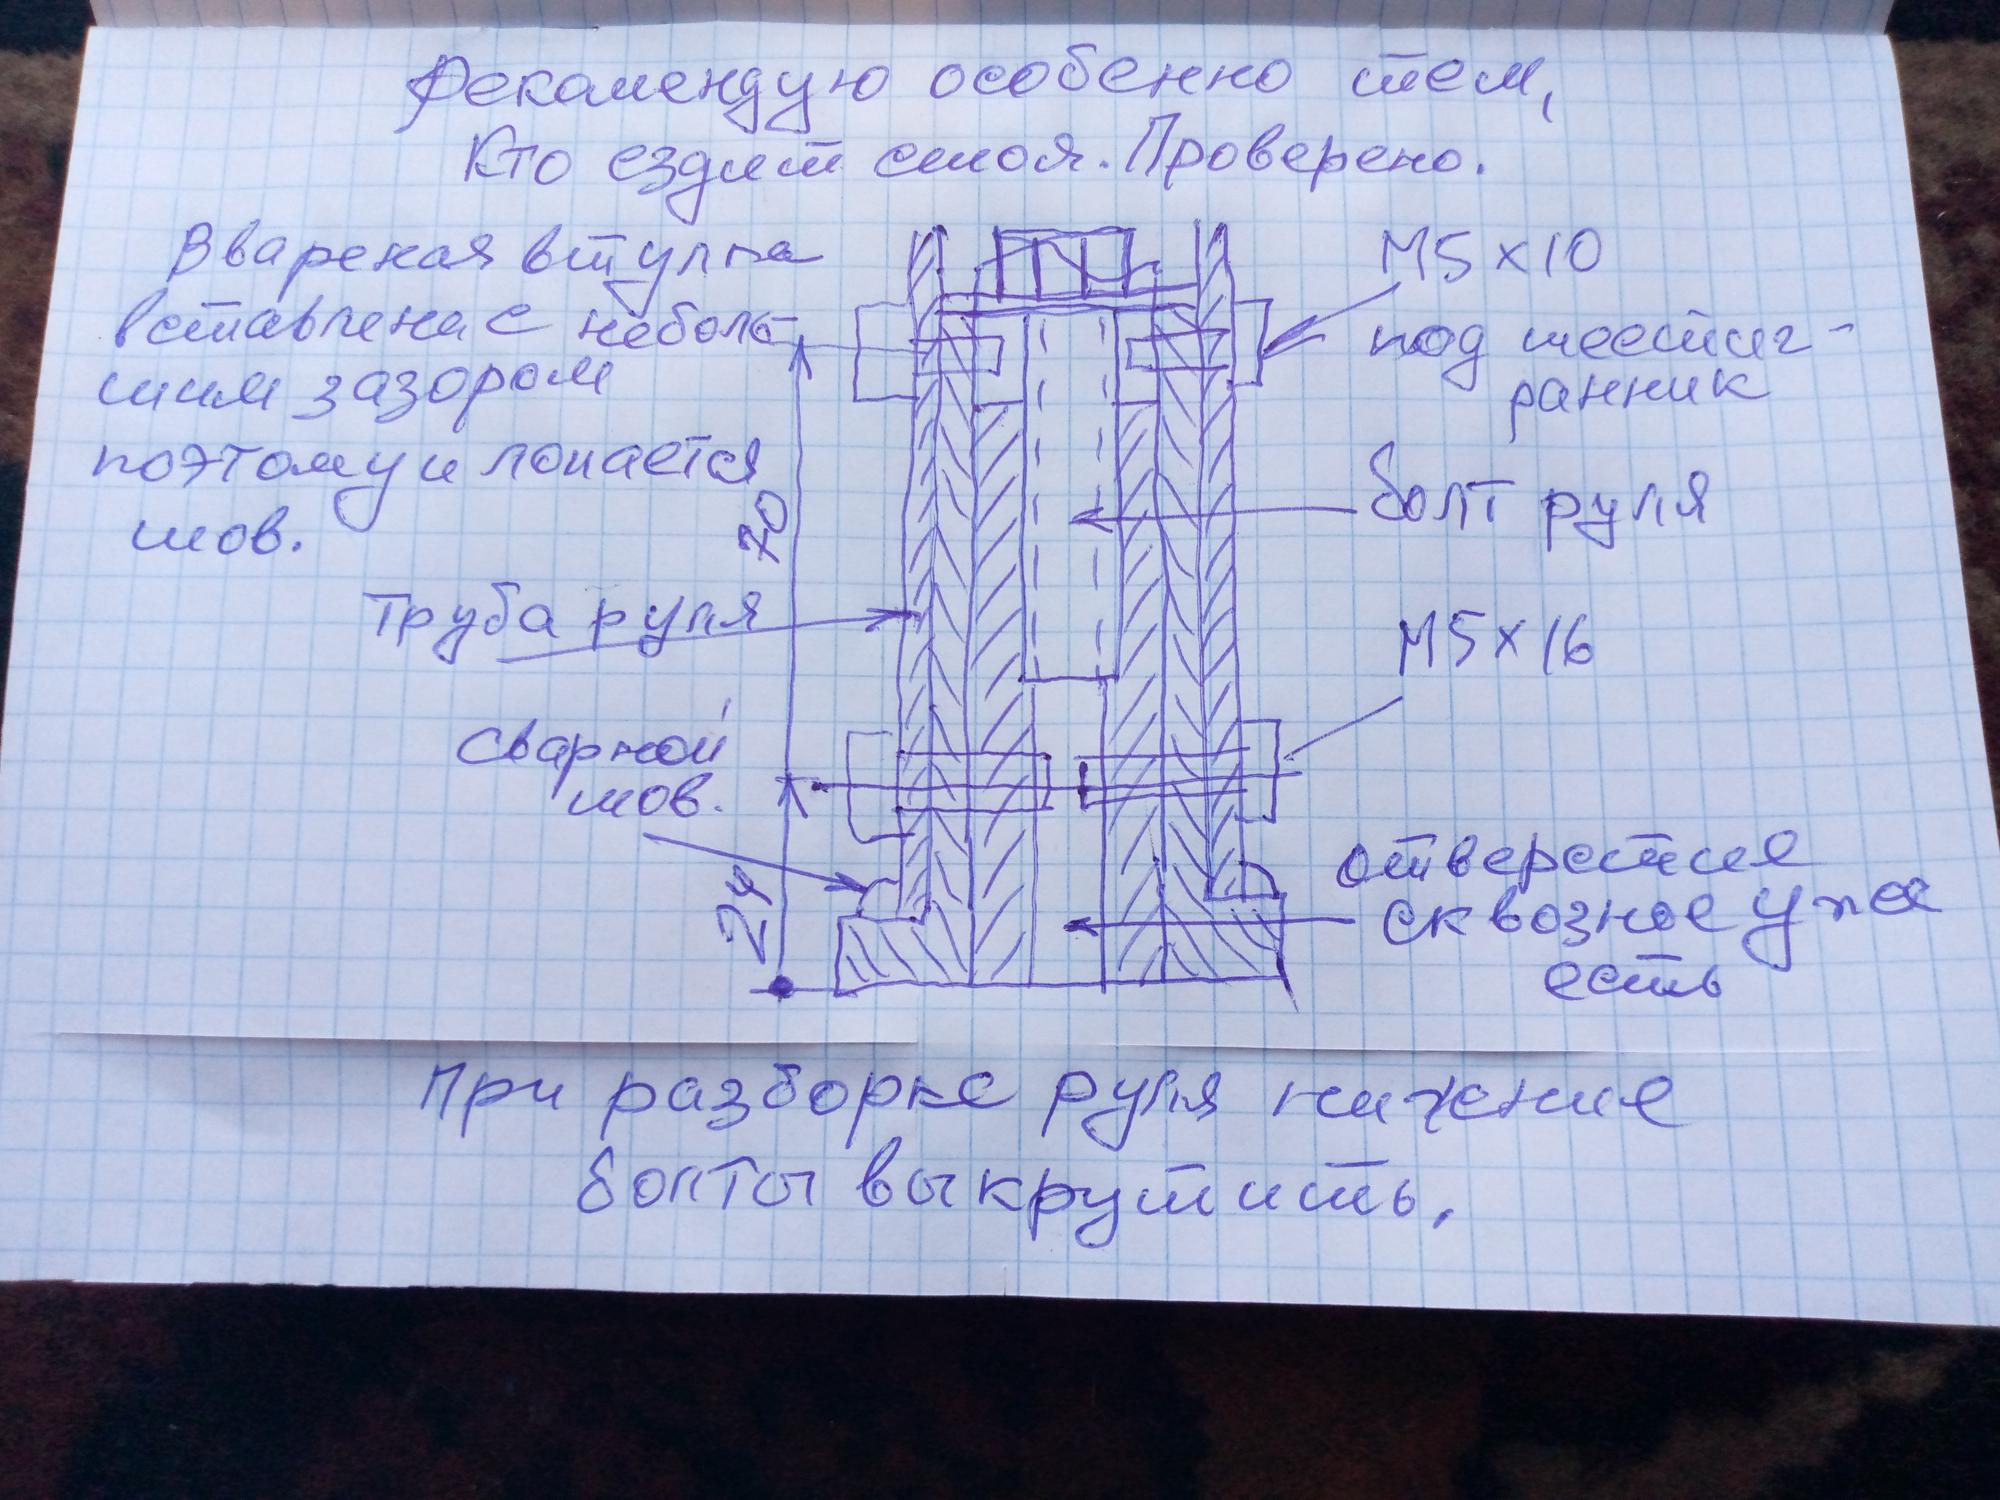 Рекомендую особенно тем,
Кто ездит стоя. Проверено.
Ввареная втулка
вставлена с неболь-
шим зазором
поэтому и лопается
шов.
М5х10
под шестиг-
ранник
70
болт руля
Труба руля
М5х16
Сварной
шов.
24
отверстие
сквозное уже
есть
При разборке руля нижение
болты выкрутить.